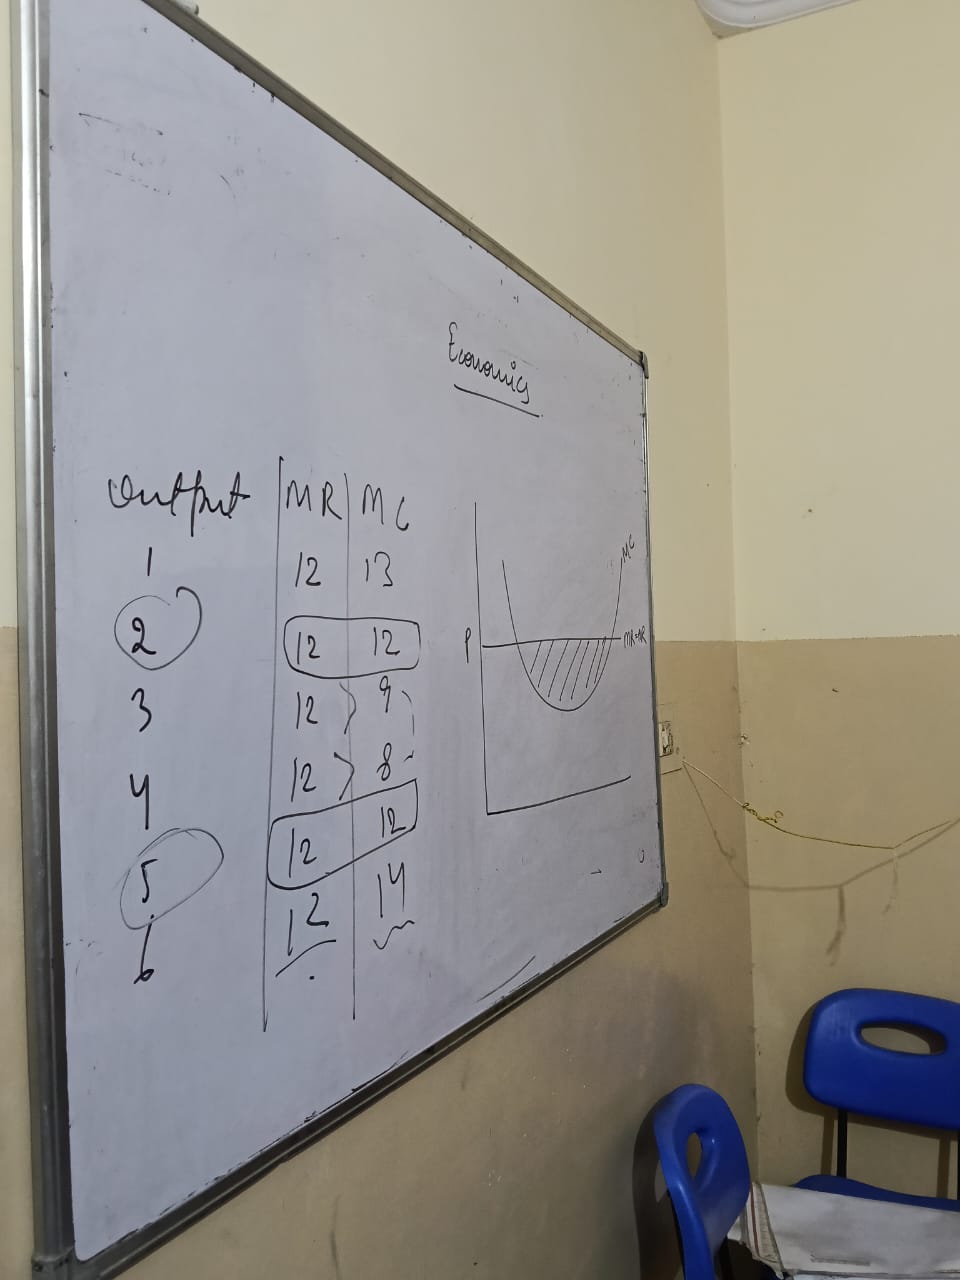 Economics
Output MR MC
1 12 13
2 12 12
3 12 > 9
4 12 > 8
5 12 12
6 12 14
MC
P
MR=AR